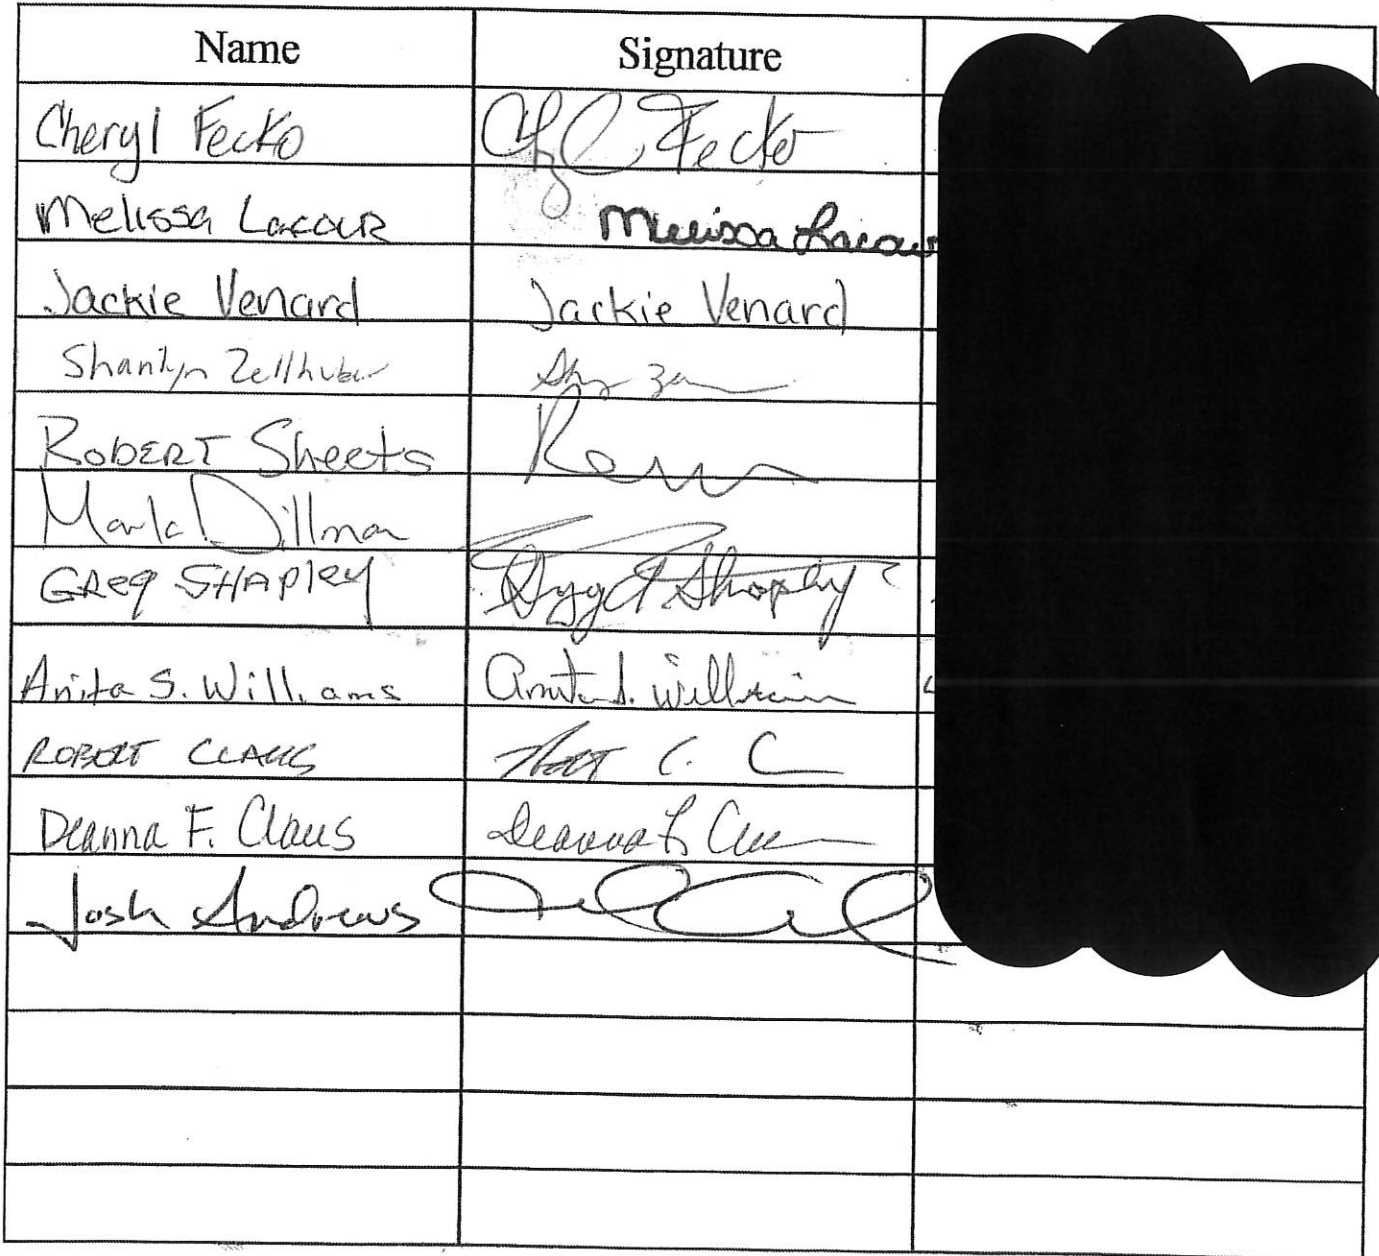 Name Signature
Cheryl Fecko Fecko
Melissa Lacour Melissa Lacour
Jackie Venard Jackie Venard
Zellhuber
ROBERT Sheets
Dillman
GREg SHAPley Shapley
Anita S. Williams Anita S. Williams
ROBERT CLAUS C. C
Deanna F. Claus Deanna F
Josh Andrews